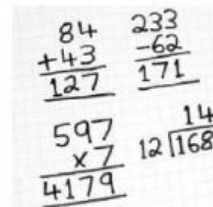 84
+43
127
233
-62
171
597
x7
4179
14
12⟌168